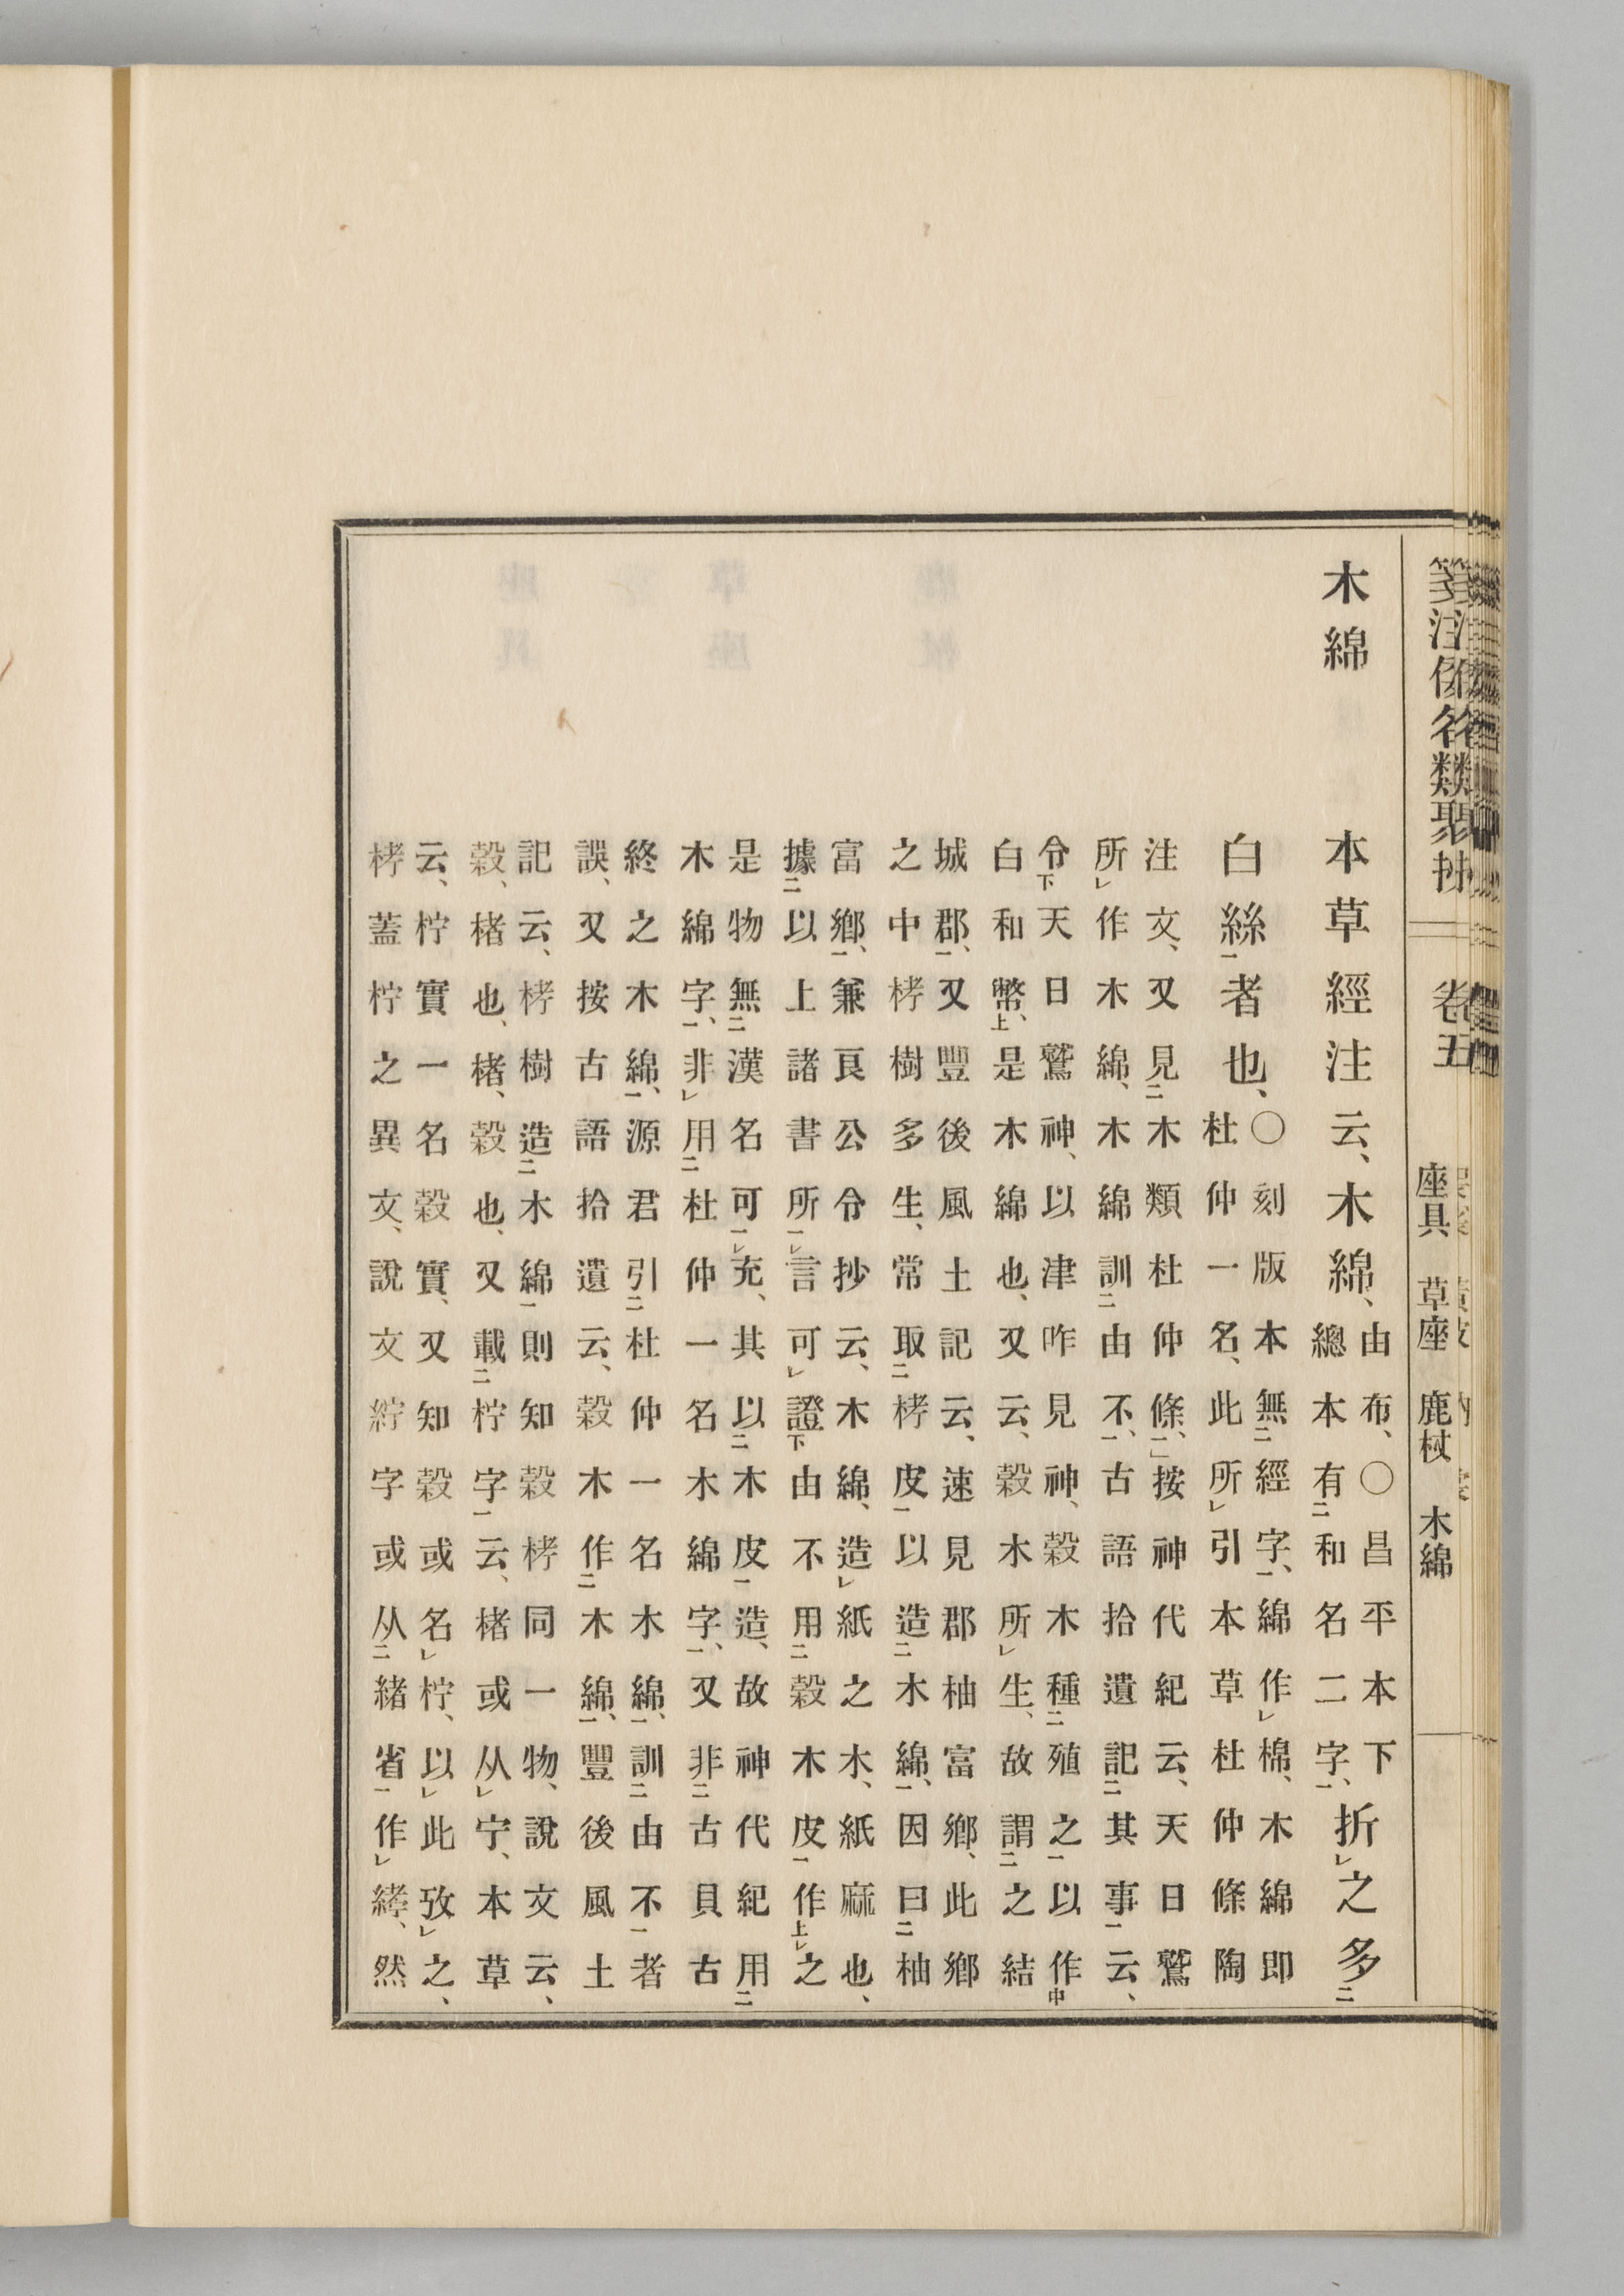 箋注倭名類聚抄 卷五 座具 草座 鹿杖 木綿
木綿
本草經注云、木綿、
由布、〇昌平本下
總本有二和名二字一、
折レ之多二
白絲一者也、
〇刻版本無二經字一、綿作レ棉、木綿即
杜仲一名、此所レ引本草杜仲條陶
注文、又見二木類杜仲條一、按神代紀云、天日鷲
所レ作木綿、木綿訓二由不一、古語拾遺記二其事一云、
令下天日鷲神、以津咋見神、穀木種二殖之一以作中
白和幣上、是木綿也、又云、穀木所レ生、故謂二之結
城郡一、又豐後風土記云、速見郡柚富鄉、此鄉
之中栲樹多生、常取二栲皮一以造二木綿一、因曰二柚
富鄉一、兼良公令抄云、木綿、造レ紙之木、紙麻也、
據二以上諸書所一レ言可レ證下由不用二穀木皮一作上レ之
是物無二漢名可一レ充、其以二木皮一造、故神代紀用二
木綿字一、非レ用二杜仲一名木綿字一、又非二古貝古
終之木綿一、源君引二杜仲一名木綿一、訓二由不一者
誤、又按古語拾遺云、穀木作二木綿一、豐後風土
記云、栲樹造二木綿一則知穀栲同一物、說文云、
穀、楮也、楮、穀也、又載二柠字一云、楮或从レ宁、本草
云、柠實一名穀實、又知穀或名レ柠、以レ此攷レ之、
栲蓋柠之異文、說文紵字或从二緒省一作レ、然